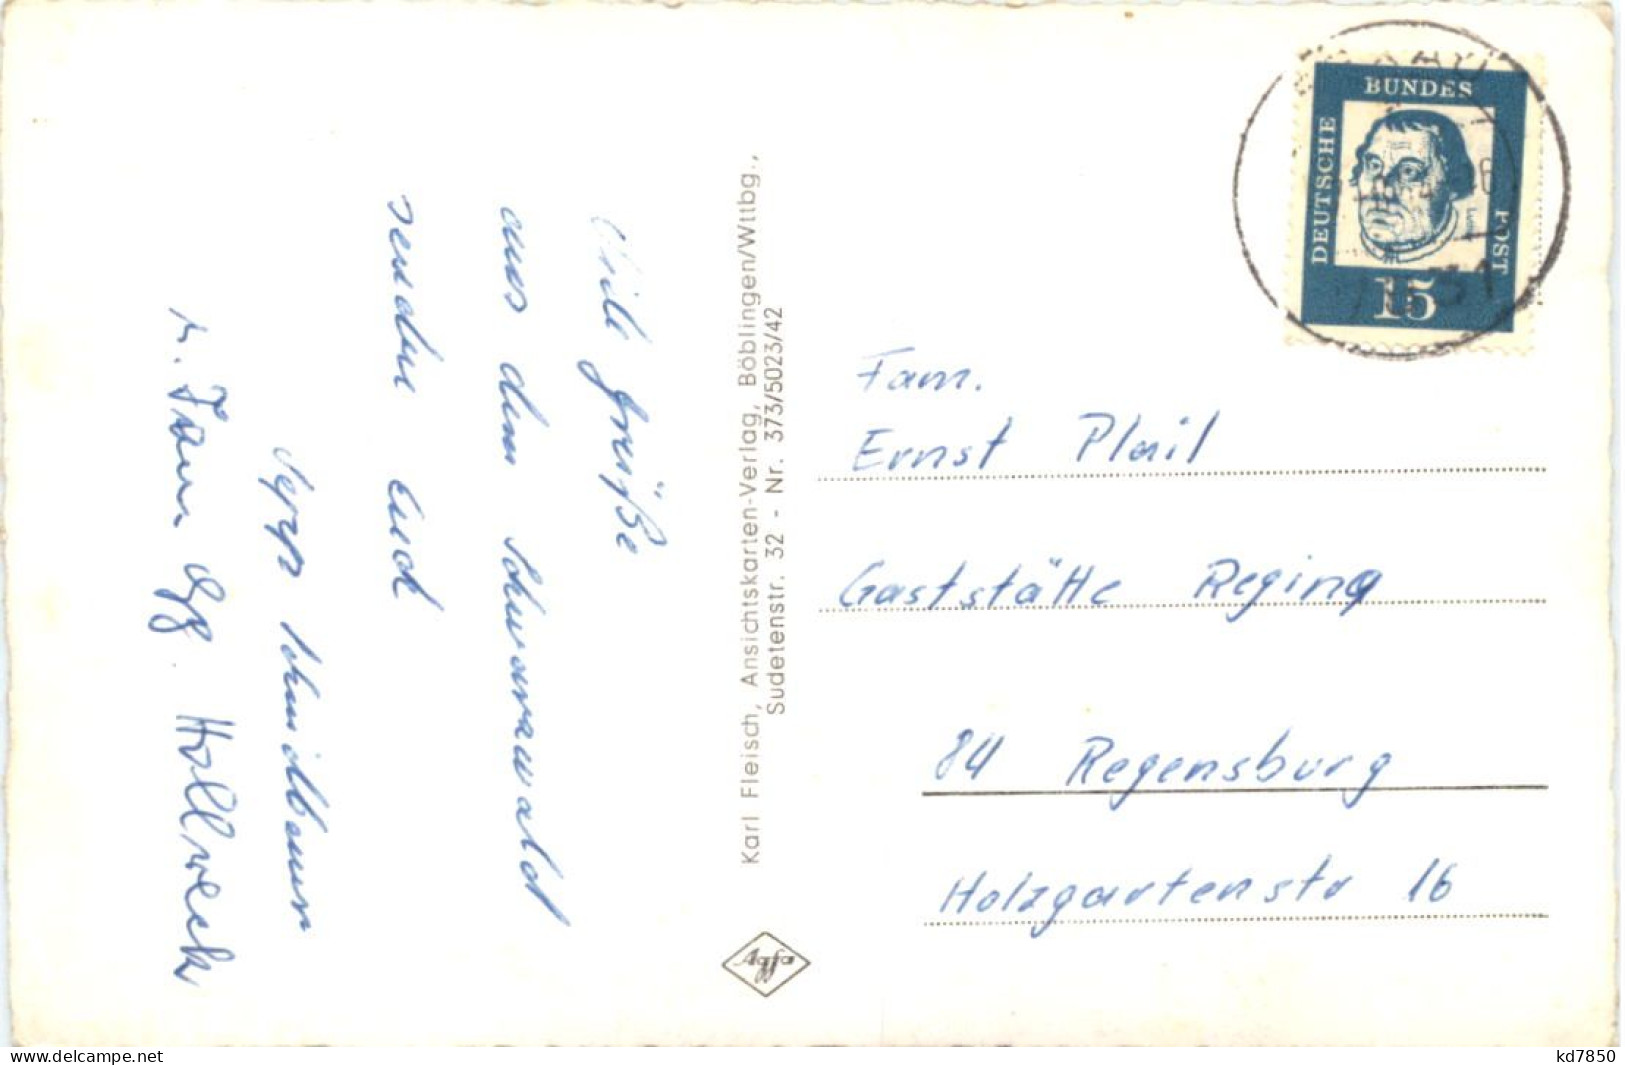 Viele Grüße
aus dem Schwarzwald
senden Euch
Sepp Schmidbauer
u. Fam. Hollweck
Karl Fleisch, Ansichtskarten-Verlag, Böblingen/Wttbg.,
Sudetenstr. 32 - Nr. 373/5023/42
Agfa
DEUTSCHE
BUNDES
POST
15
Fam.
Ernst Plail
Gaststätte Regina
84 Regensburg
Holzgartenstr 16
www.delcampe.net
kd7850